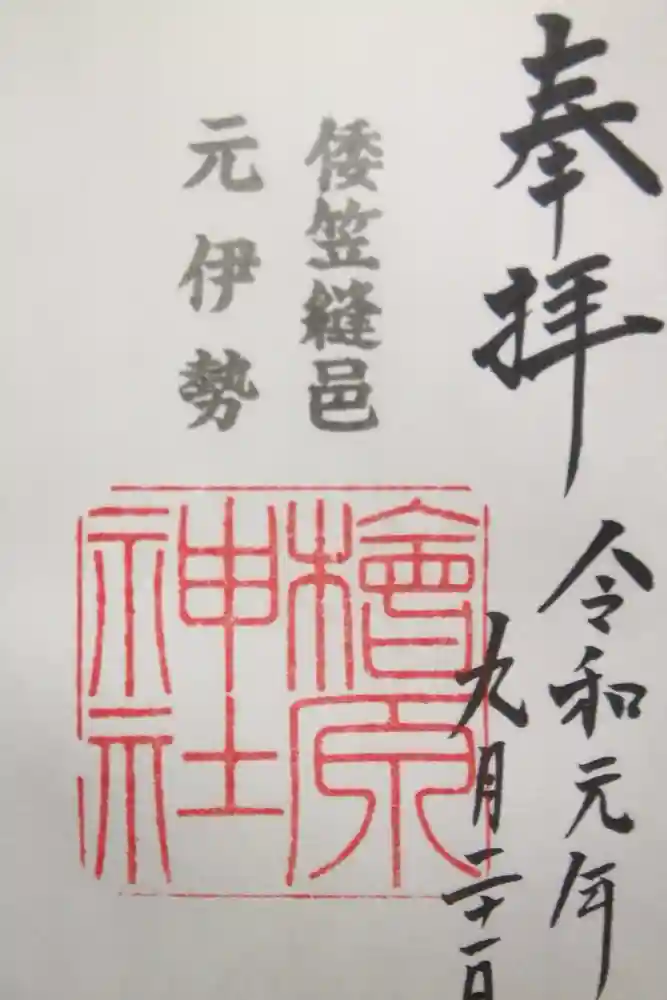 奉拝
令和元年
九月二十一日
倭笠縫邑
元伊勢
檜原
神社